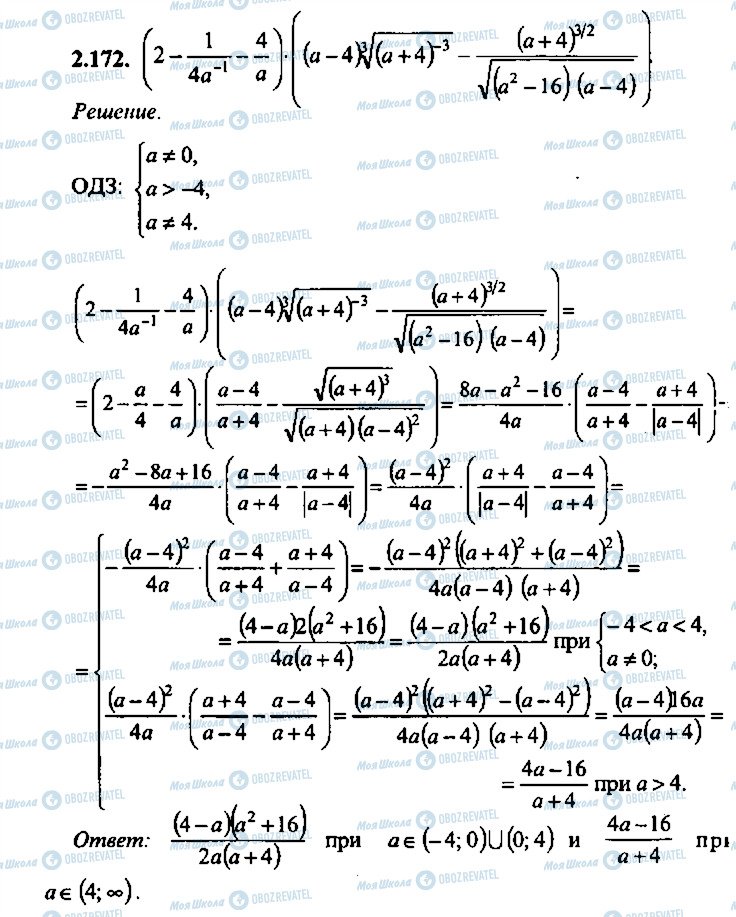 2.172. (2 − 1/(4a⁻¹) − 4/a) · ((a − 4)∛((a + 4)⁻³) − (a + 4)^(3/2)/√((a² − 16)(a − 4))).
Решение.
ОДЗ: { a ≠ 0,
a > −4,
a ≠ 4.
(2 − 1/(4a⁻¹) − 4/a) · ((a − 4)∛((a + 4)⁻³) − (a + 4)^(3/2)/√((a² − 16)(a − 4))) =
= (2 − a/4 − 4/a) · ((a − 4)/(a + 4) − √((a + 4)³)/√((a + 4)(a − 4)²)) = (8a − a² − 16)/(4a) · ((a − 4)/(a + 4) − (a + 4)/|a − 4|) =
= −(a² − 8a + 16)/(4a) · ((a − 4)/(a + 4) − (a + 4)/|a − 4|) = (a − 4)²/(4a) · ((a + 4)/|a − 4| − (a − 4)/(a + 4)) =
= { −(a − 4)²/(4a) · ((a − 4)/(a + 4) + (a + 4)/(a − 4)) = −(a − 4)²((a + 4)² + (a − 4)²)/(4a(a − 4)(a + 4)) =
= (4 − a)2(a² + 16)/(4a(a + 4)) = (4 − a)(a² + 16)/(2a(a + 4)) при { −4 < a < 4,
a ≠ 0;
(a − 4)²/(4a) · ((a + 4)/(a − 4) − (a − 4)/(a + 4)) = (a − 4)²((a + 4)² − (a − 4)²)/(4a(a − 4)(a + 4)) = (a − 4)16a/(4a(a + 4)) =
= (4a − 16)/(a + 4) при a > 4.
Ответ: (4 − a)(a² + 16)/(2a(a + 4)) при a ∈ (−4; 0)∪(0; 4) и (4a − 16)/(a + 4) при
a ∈ (4; ∞).